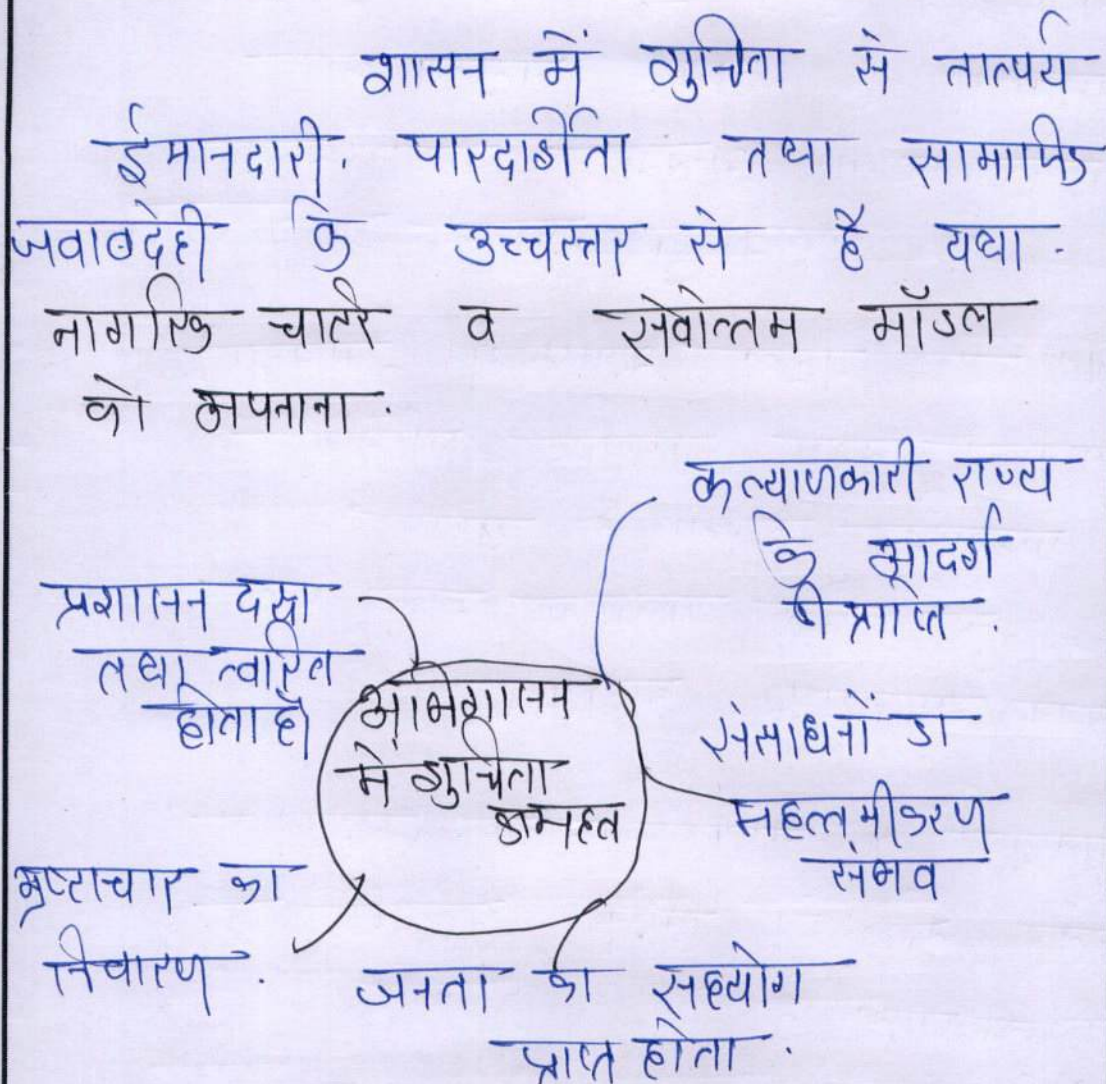 शासन में शुचिता से तात्पर्य
ईमानदारी, पारदर्शिता तथा सामाजिक
जवाबदेही के उच्चस्तर से है यथा-
नागरिक चार्टर व सेवोत्तम मॉडल
को अपनाना.
कल्याणकारी राज्य
के आदर्श
की प्राप्ति.
प्रशासन दक्ष
तथा त्वरित
होता है
अभिशासन
में शुचिता
का महत्व
संसाधनों का
महत्तमीकरण
संभव
भ्रष्टाचार का
निवारण.
जनता का सहयोग
प्राप्त होता.